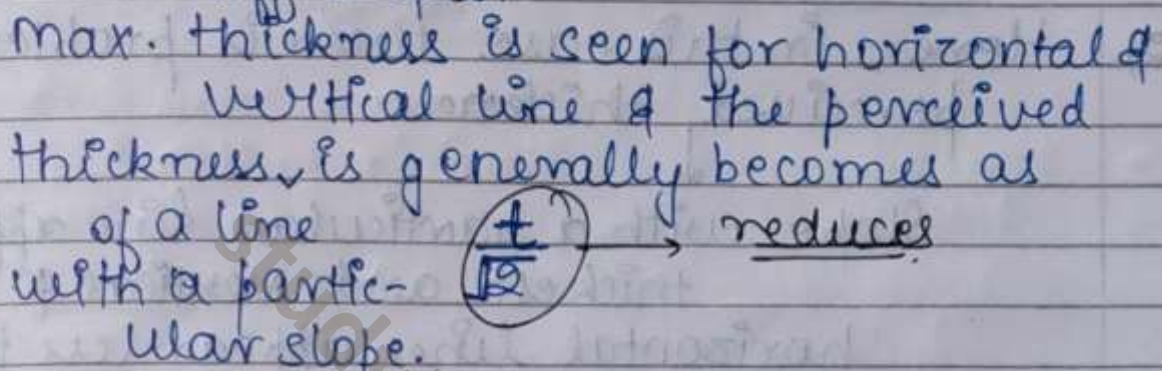 max. thickness is seen for horizontal &
vertical line & the perceived
thickness✓ is generally becomes as
of a line t/√2 → reduces
with a partic-
ular slope.